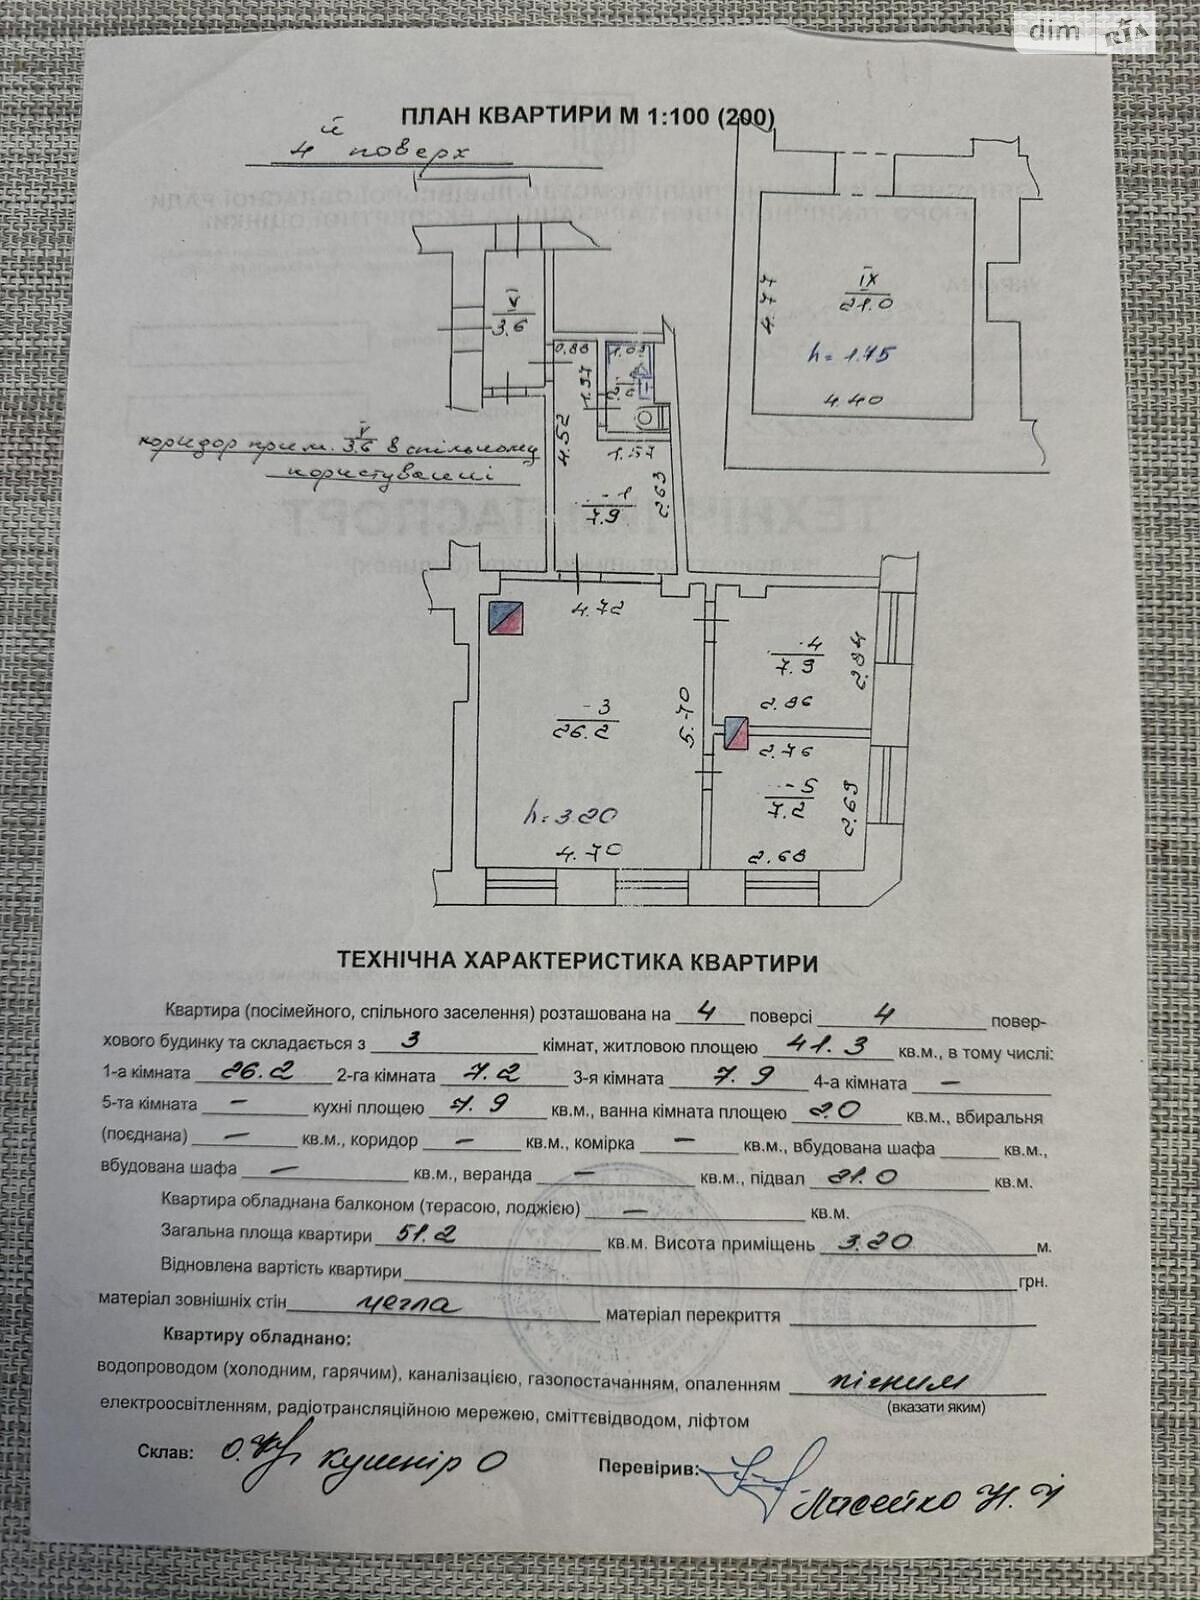 dim RIA
ПЛАН КВАРТИРИ М 1:100 (200)
4й поверх
V
3.6
0.88
1.09
1.97
4.52
1.57
2.63
-1
7.9
IX
21.0
4.77
h=1.75
4.40
коридор прим. V 3.6 в спільному
користуванні
4.72
-3
26.2
5.70
h=3.20
4.70
-4
7.9
2.94
2.86
2.76
-5
7.2
2.69
2.68
ТЕХНІЧНА ХАРАКТЕРИСТИКА КВАРТИРИ
Квартира (посімейного, спільного заселення) розташована на 4 поверсі 4 повер-
хового будинку та складається з 3 кімнат, житловою площею 41.3 кв.м., в тому числі:
1-а кімната 26.2 2-га кімната 7.2 3-я кімната 7.9 4-а кімната —
5-та кімната — кухні площею 7.9 кв.м., ванна кімната площею 2.0 кв.м., вбиральня
(поєднана) — кв.м., коридор — кв.м., комірка — кв.м., вбудована шафа кв.м.,
вбудована шафа — кв.м., веранда — кв.м., підвал 21.0 кв.м.
Квартира обладнана балконом (терасою, лоджією) — кв.м.
Загальна площа квартири 51.2 кв.м. Висота приміщень 3.20 м.
Відновлена вартість квартири грн.
матеріал зовнішніх стін цегла матеріал перекриття
Квартиру обладнано:
водопроводом (холодним, гарячим), каналізацією, газопостачанням, опаленням пічним
(вказати яким)
електроосвітленням, радіотрансляційною мережею, сміттєвідводом, ліфтом
Склав: Кушнір О Перевірив: